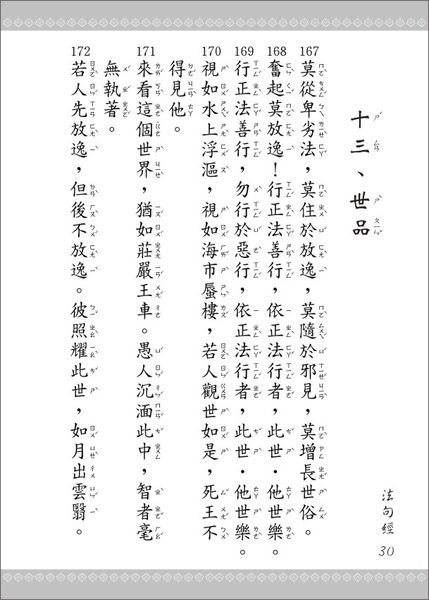 十三、世品
167
莫從卑劣法，莫住於放逸，莫隨於邪見，莫增長世俗。
168
奮起莫放逸！行正法善行，依正法行者，此世·他世樂。
169
行正法善行，勿行於惡行，依正法行者，此世·他世樂。
170
視如水上浮漚，視如海市蜃樓，若人觀世如是，死王不
得見他。
171
來看這個世界，猶如莊嚴王車。愚人沉湎此中，智者毫
無執著。
172
若人先放逸，但後不放逸。彼照耀此世，如月出雲翳。
法句經
30